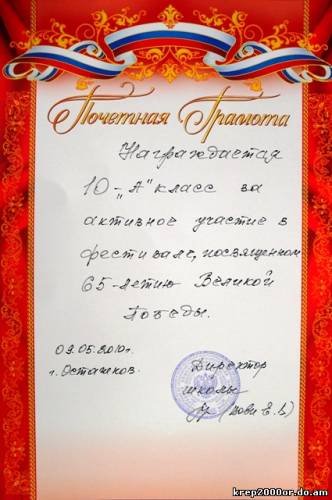 Почетная Грамота
Награждается
10-„А" класс за
активное участие в
фестивале, посвященном
65-летию Великой
Победы.
09.05.2010г.
г. Осташков.
Директор
школы
krep2000or.do.am